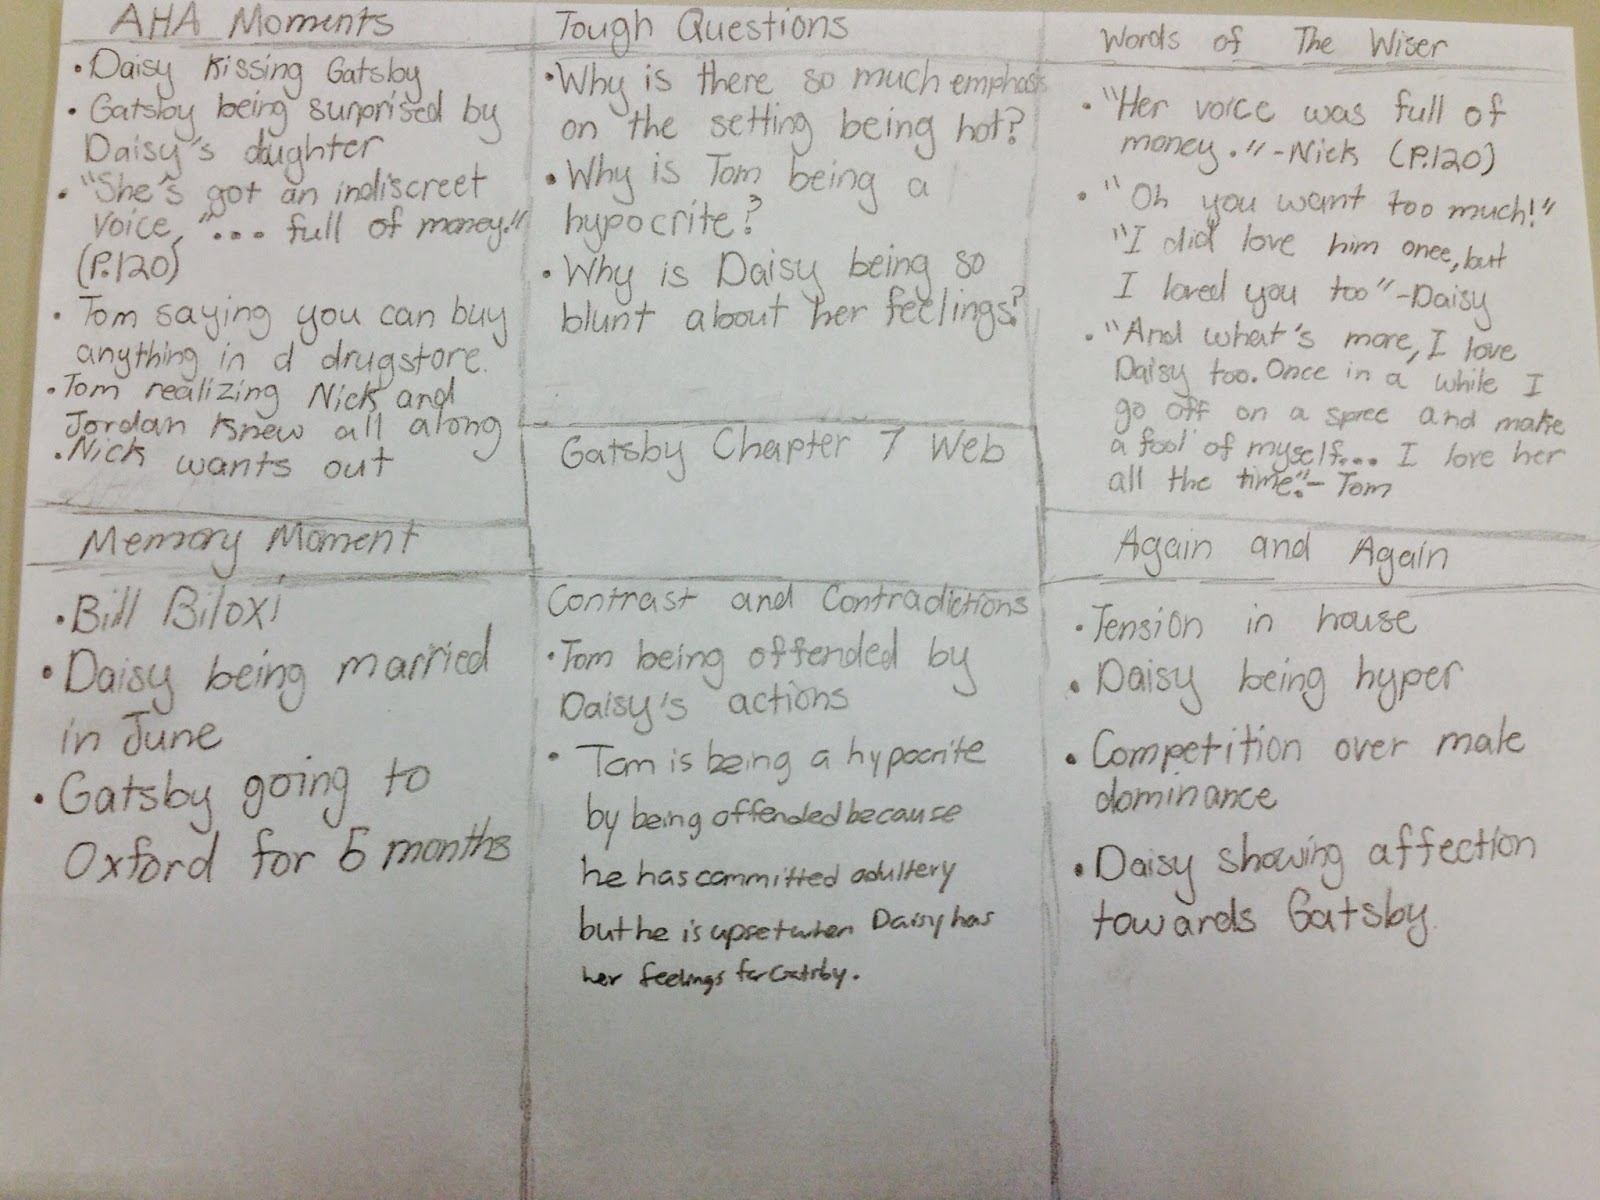 AHA Moments
• Daisy Kissing Gatsby
• Gatsby being surprised by
Daisy's daughter
• "She's got an indiscreet
voice, "... full of money."
(P.120)
• Tom saying you can buy
anything in d drugstore.
• Tom realizing Nick and
Jordan Knew all along
• Nick wants out
Tough Questions
• Why is there so much emphasis
on the setting being hot?
• Why is Tom being a
hypocrite?
• Why is Daisy being so
blunt about her feelings?
Words of The Wiser
• "Her voice was full of
money." - Nick (P.120)
• "Oh you want too much!"
"I did love him once, but
I loved you too" - Daisy
• "And what's more, I love
Daisy too. Once in a while I
go off on a spree and make
a fool of myself... I love her
all the time." - Tom
Gatsby Chapter 7 Web
Memory Moment
• Bill Biloxi
• Daisy being married
in June
• Gatsby going to
Oxford for 5 months
Contrast and Contradictions
• Tom being offended by
Daisy's actions
• Tom is being a hypocrite
by being offended because
he has committed adultery
but he is upset when Daisy has
her feelings for Gatsby.
Again and Again
• Tension in house
• Daisy being hyper
• Competition over male
dominance
• Daisy showing affection
towards Gatsby.